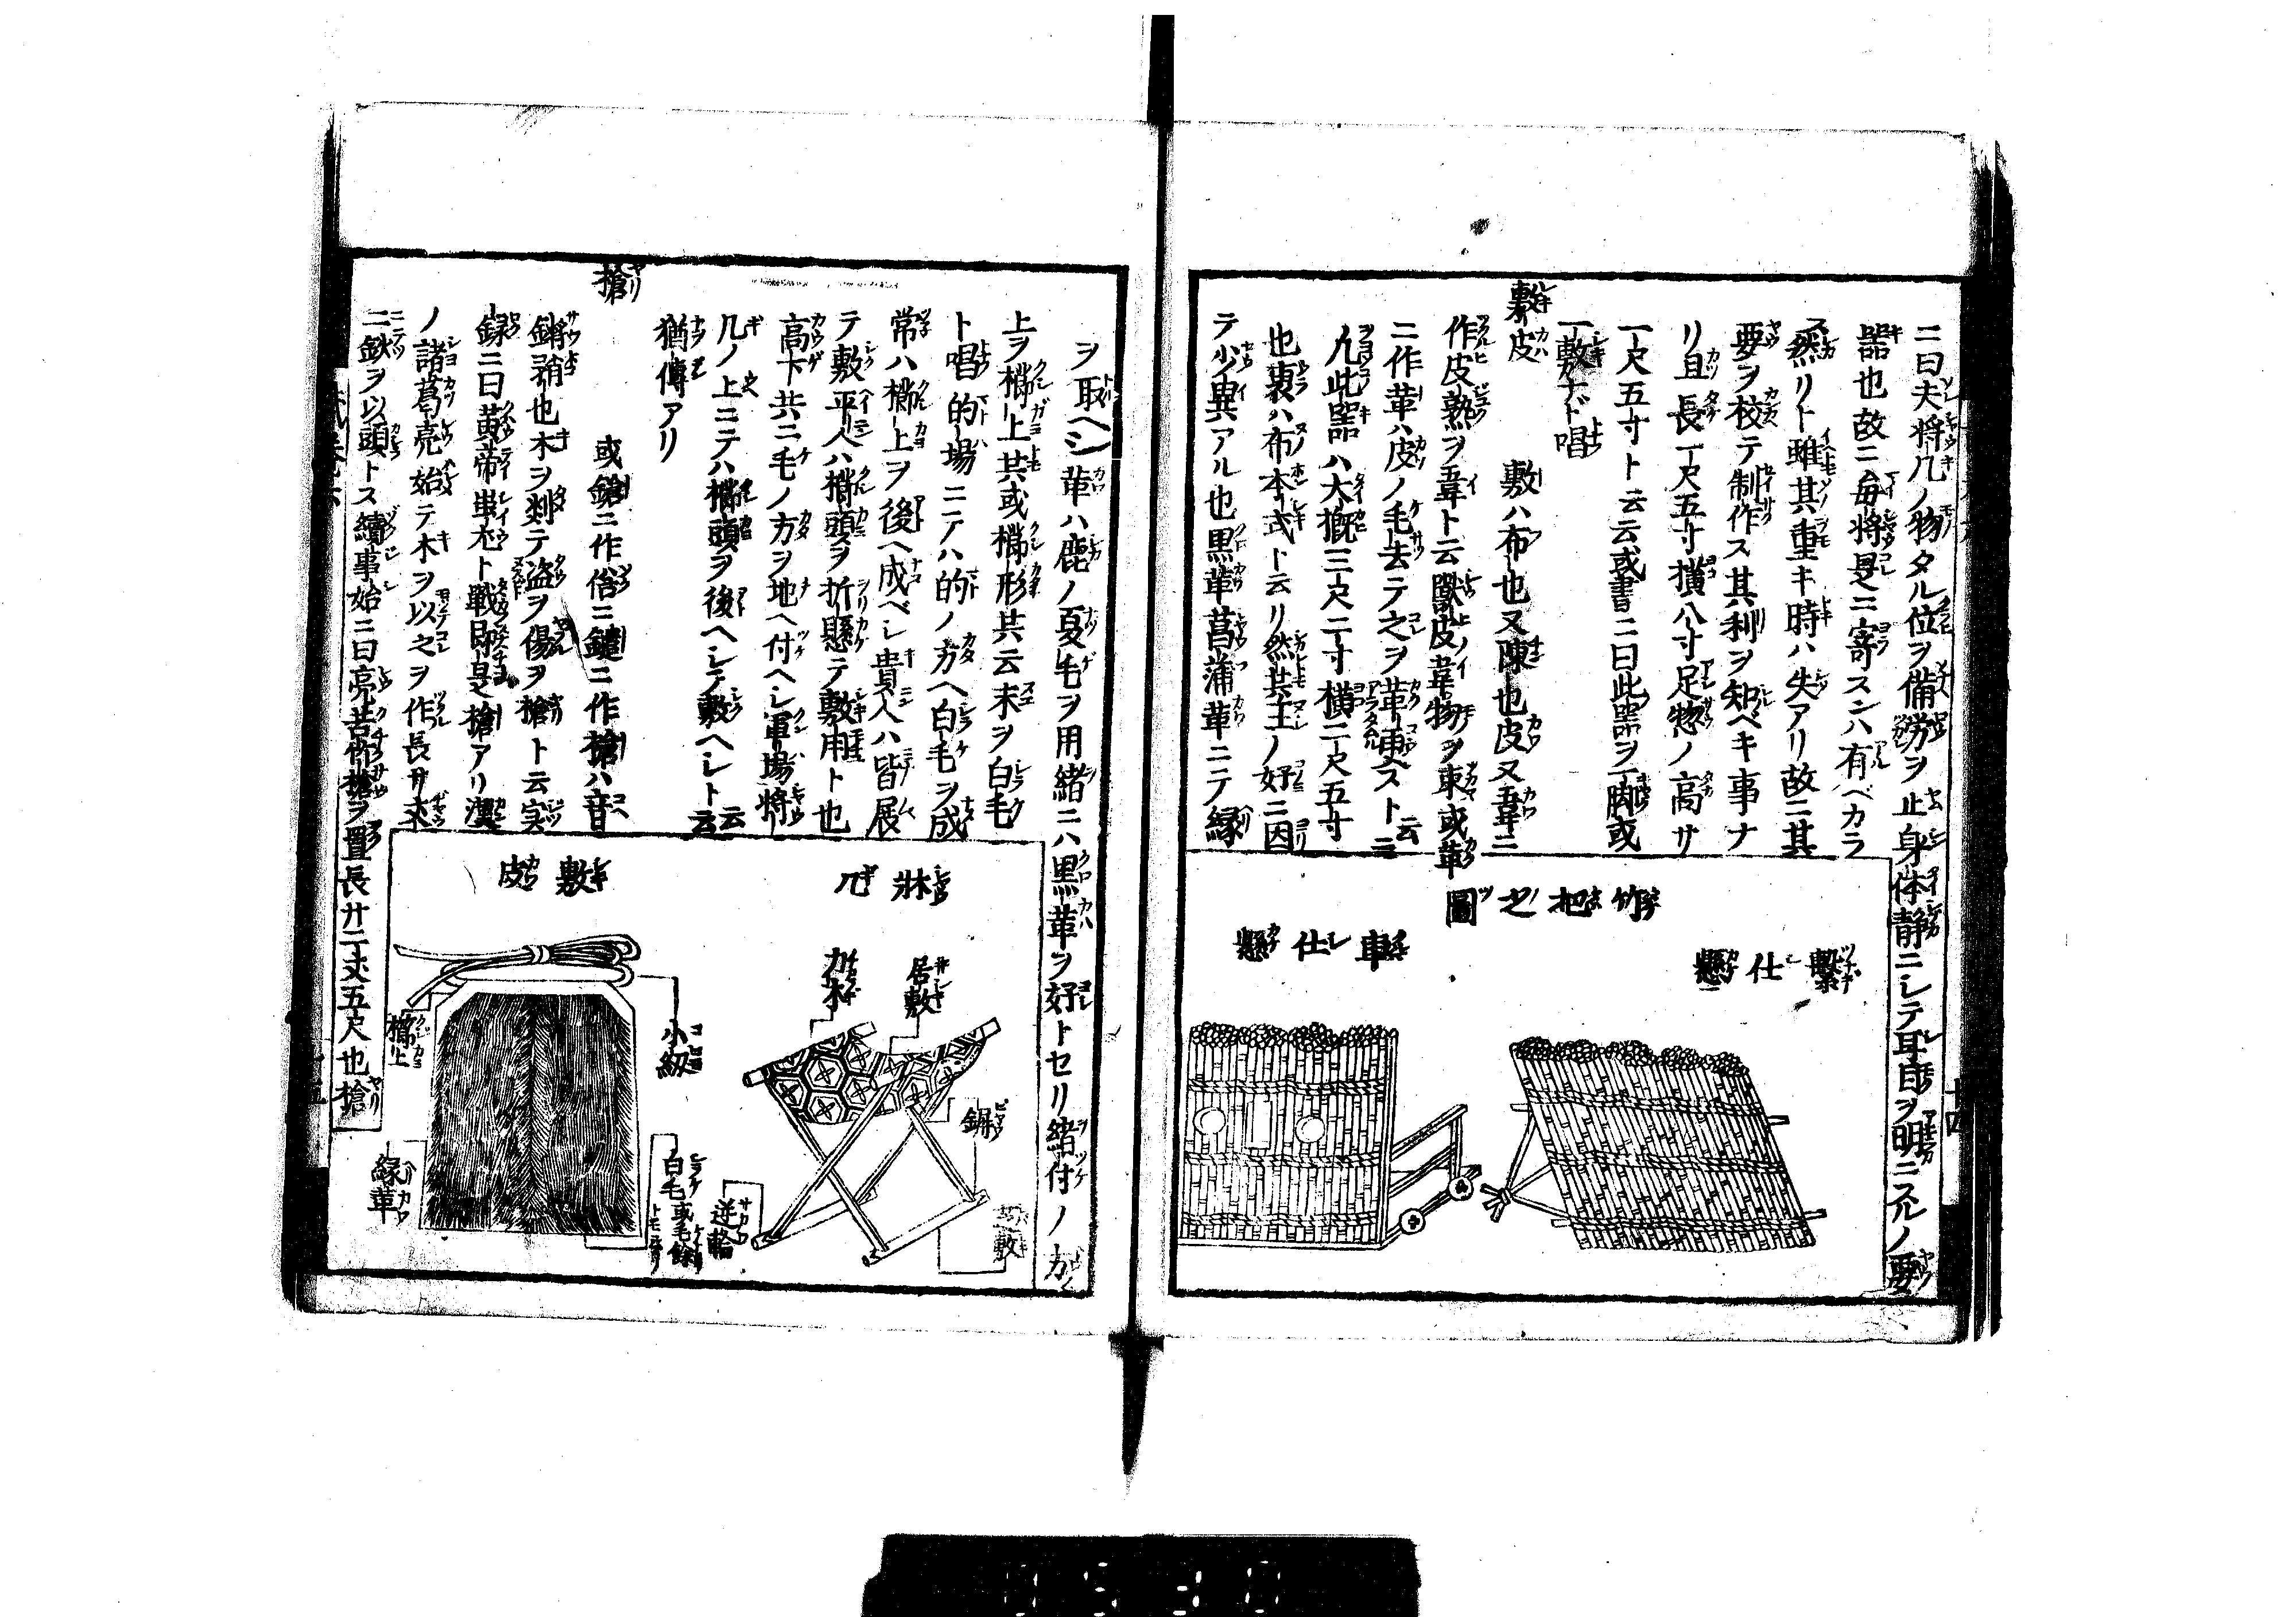 ニ曰夫将几ノ物タル位ヲ備労ヲ止身体静ニシテ耳目ヲ明ニスルノ要
器也故ニ毎将是ニ寄スンハ有ベカラ
ス然リト雖其重キ時ハ失アリ故ニ其
要ヲ校テ制作ス其利ヲ知ベキ事ナ
リ且長一尺五寸横八寸足惣ノ高サ
一尺五寸ト云云或書ニ曰此器ヲ一脚或
一敷ナド唱
敷皮
敷ハ布也又陳也皮又韋ニ
作皮熟ヲ韋ト云獸皮韋物ヲ束或革
ニ作革ハ皮ノ毛去テ之ヲ革更スト云云
凡此器ハ大概三尺二寸横二尺五寸
也裏ハ布本式ト云リ然共主ノ好ニ因
テ少異アル也黒革菖蒲革ニテ縁
竹把之圖
繋仕懸
車仕懸
ヲ取ヘシ革ハ鹿ノ夏毛ヲ用緒ニハ黒革ヲ好トセリ緒付ノ方
上ヲ櫛上共或櫛形共云末ヲ白毛
ト唱的場ニアハ的ノ方ヘ白毛ヲ成
常ハ櫛上ヲ後ヘ成ベシ貴人ハ皆展
テ敷平人ハ櫛頭ヲ折懸テ敷用ト也
高下共ニ毛ノ方ヲ地ヘ付ヘシ軍場将
几ノ上ニテハ櫛頭ヲ後ヘシテ敷ヘシト云云
猶傳アリ
槍
或鎗ニ作俗ニ鑓ニ作槍ハ音
鏘矟也木ヲ剡テ盗ヲ傷ヲ槍ト云実
録ニ曰黄帝蚩尤ト戦即是槍アリ漢
ノ諸葛亮始テ木ヲ以之ヲ作長サ丈
二鉄ヲ以頭トス續事始ニ曰亮苦竹槍ヲ置長廿二丈五尺也槍
牀几
敷皮
居敷
力木
小紐
櫛上
縁革
逆輪